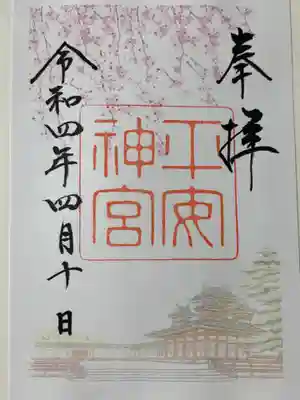 奉拝
平安
神宮
令和四年四月十日